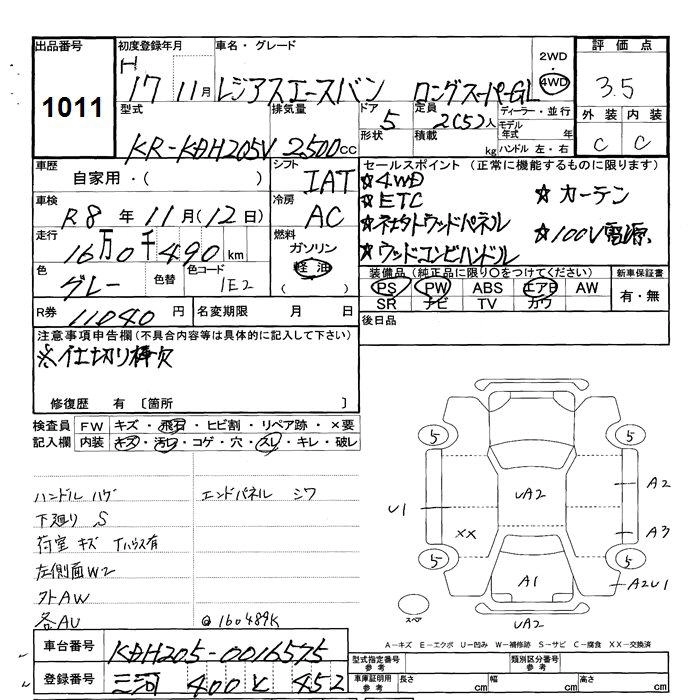 出品番号 初度登録年月 車名・グレード 2WD・4WD 評価点
1011 H 17 11月 レジアスエースバン ロングスーパーGL 3.5
型式 排気量 ドア 5 定員 2(5)人 ディーラー・並行 外装 内装
形状 積載 kg モデル年式 年 ハンドル 左・右 C C
KR-KDH205V 2500cc
車歴 自家用・( ) シフト IAT セールスポイント (正常に機能するものに限ります)
車検 R8年11月(12日) 冷房 AC
☆4WD
☆ETC ☆カーテン
☆ウッドコンビハンドル ☆100V電源
走行 16万0千490km 燃料 ガソリン 軽油 ( )
色 グレー 色替 色コード 1E2
装備品 (純正品に限り○をつけてください) 新車保証書
PS PW ABS エアB AW 有・無
SR ナビ TV カワ
R券 11040円 名変期限 月 日 後日品
注意事項申告欄 (不具合内容等は具体的に記入して下さい)
※仕切り棒欠
修復歴 有 〔箇所 〕
検査員 FW キズ・飛石・ヒビ割・リペア跡・×要
記入欄 内装 キズ・汚れ・コゲ・穴・スレ・キレ・破レ
ハンドル ハゲ エンドパネル シワ
下廻り S
荷室 キズ Tハウス有
左側面W2
外AW
各AU @160489K
5 5
U1 UA2 A2
XX A3
5 5
A1 A2U1
スペア UA2
A-キズ E-エクボ U-凹み W-補修跡 S-サビ C-腐食 XX-交換済
車台番号 KDH205-0016575
登録番号 三河 400 と 452
型式指定番号 参考 類別区分番号 参考
車庫証明用 参考 長さ cm 幅 cm 高さ cm